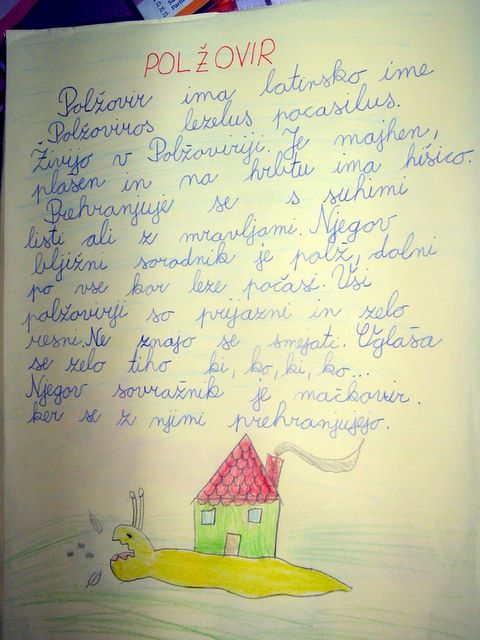 POLŽOVIR
Polžovir ima latinsko ime
Polžoviros lezelus pocasilus.
Živijo v Polžoviriji. Je majhen,
plašen in na hrbtu ima hišico.
Prehranjuje se s suhimi
listi ali z mravljami. Njegov
bližnji sorodnik je polž, dolni
po vse kar leze počasi. Vsi
polžovirji so prijazni in zelo
resni. Ne znajo se smejati. Oglaša
se zelo tiho ki, ko, ki, ko...
Njegov sovražnik je mačkovir.
ker se z njimi prehranjujejo.